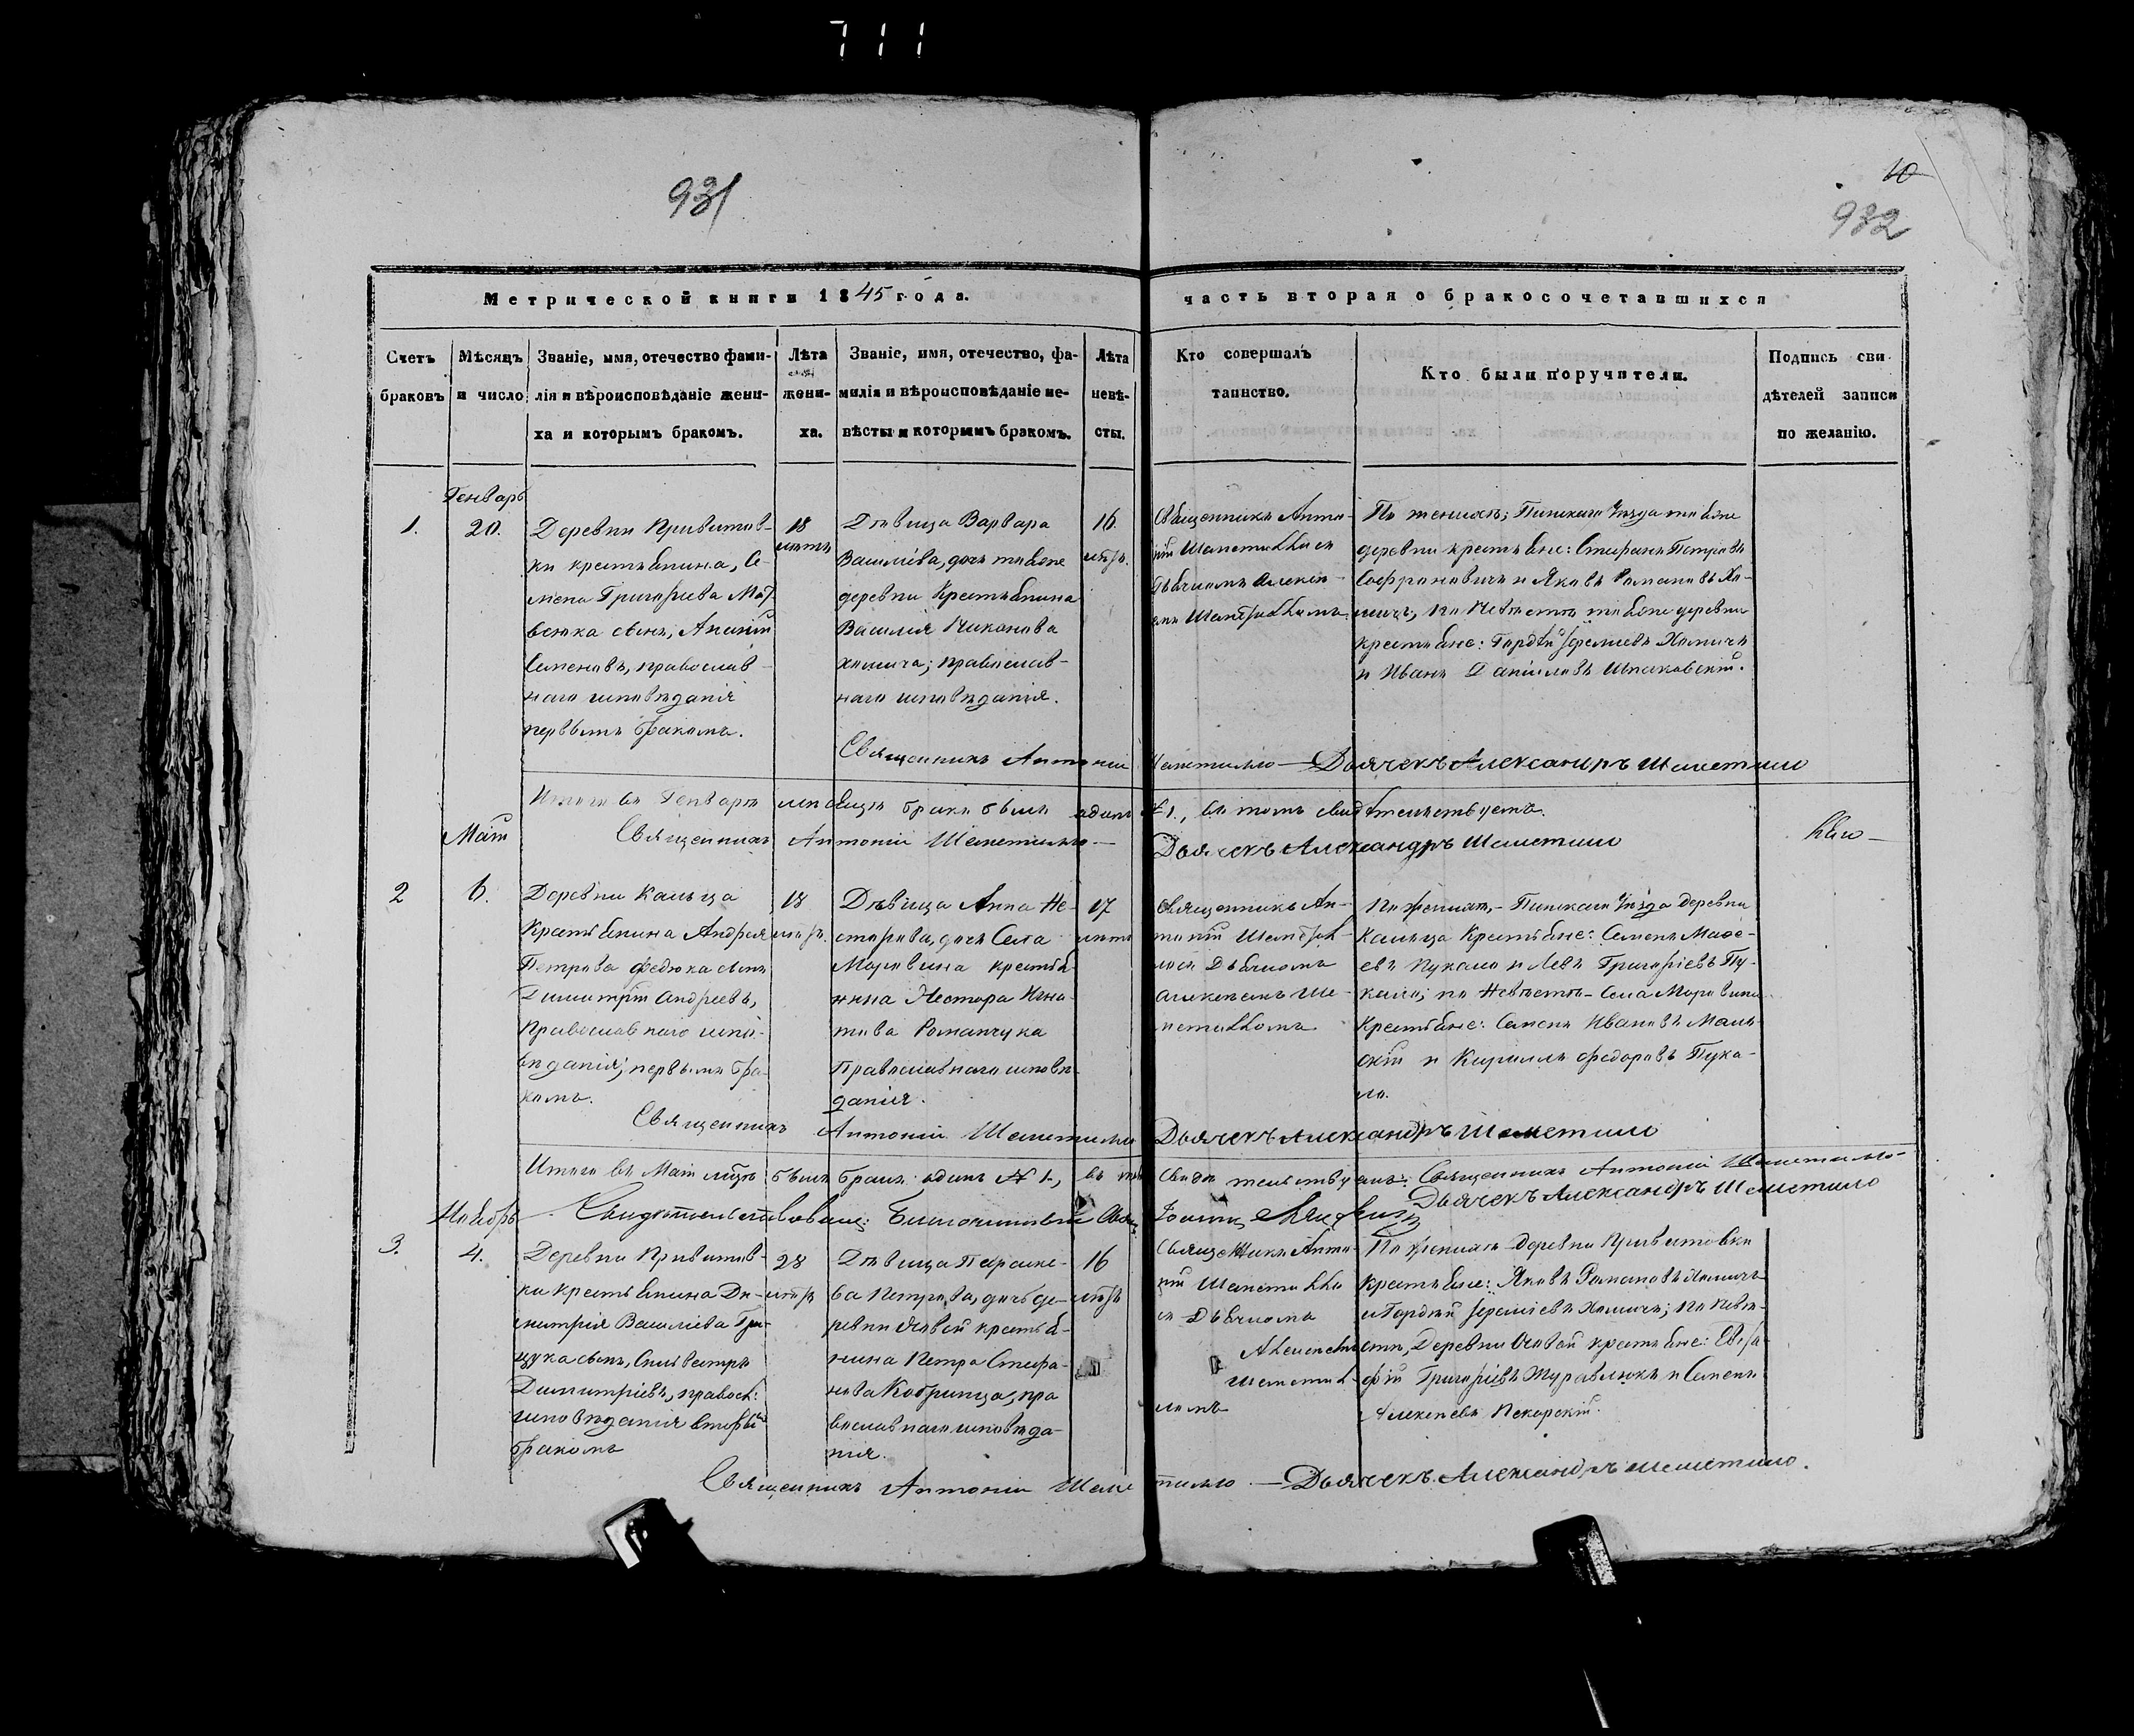 711
931
10
932
Метрической книги 1845 года.
часть вторая о бракосочетавшихся
Счетъ браковъ
Мѣсяцъ и число
Званіе, имя, отечество фами-
лія и вѣроисповѣданіе жени-
ха и которымъ бракомъ.
Лѣта
жени-
ха.
Званіе, имя, отечество, фа-
милія и вѣроисповѣданіе не-
вѣсты и которымъ бракомъ.
Лѣта
невѣ-
сты.
Кто совершалъ
таинство.
Кто были поручители.
Подпись сви-
дѣтелей записи
по желанію.
Генварь
1.
20.
Деревни Привитов-
ки крестьянина, Се-
мена Григорьева Мат
веюка сынъ,
Семеновъ, православ-
наго исповѣданія
первымъ бракомъ.
18
лѣтъ
Дѣвица Варвара
Васильева, дочь тоьже
деревни Крестьянина
Василія Никонова
Хомича; православ-
наго исповѣданія.
16.
лѣтъ.
Священникъ Анто-
ній Шеметилло съ
Дьячкомъ
Шеметилломъ
По женихѣ; Пинскаго Уѣзда тоьже
деревни крестьяне: Стефанъ Петровъ
Софроновичъ и Яковъ Романовъ Хо-
мичъ, по Невѣстѣ тоьже деревни
крестьяне: Гордѣй Іереміевъ Хомичъ
и Иванъ Даниловъ Шпаковскій.
Священникъ Антоній Шеметилло — Дьячекъ Александръ Шеметилло
Итого въ Генварѣ мѣсяцѣ бракъ былъ одинъ №1., въ томъ свидѣтельствуемъ.
Священникъ Антоній Шеметилло —
Дьячекъ Александръ Шеметилло
Май
2
6.
Деревни Кальца
Крестьянина Андрея
Петрова Федюка сынъ
Димитрій Андреевъ,
Православнаго испо-
вѣданія; первымъ бра-
комъ.
18
лѣтъ.
Дѣвица Анна Не-
сторова, дочь Села
Моровина крестья
нина Нестора Игна-
това Романчука
Православнаго исповѣ-
данія.
17
лѣтъ
Священникъ Ан-
тоній Шеметил-
ло съ Дьячкомъ
Ше-
метилломъ
По Женихѣ,- Пинскаго Уѣзда Деревни
Кальца Крестьяне: Семенъ Мате-
евъ Пукало и Левъ Григоріевъ Пу-
кало; по Невѣстѣ- Села Моровина
Крестьяне: Семенъ Ивановъ Маль-
скій и Кириллъ Федоровъ Пука-
ло.
Священникъ Антоній Шеметилло Дьячекъ Александръ Шеметилло
Итого въ Маѣ мѣсяцѣ былъ бракъ одинъ №1, въ томъ свидѣтельствуемъ: Священникъ Антоній Шеметилло-
Дьячекъ Александръ Шеметилло
Свидѣтельствовалъ: Благочинный
Ноябрь
3.
4.
Деревни Привитов-
ки Крестьянина Ди-
митрія Василіева Гри-
цука сынъ, Сильвестръ
Димитріевъ, правосл:
исповѣданія вторымъ
бракомъ
28
лѣтъ
Дѣвица Параске-
ва Петрова, дочь де-
ревни Новой крестья-
нина Петра Стефа-
нова Кобринца, пра
вославнаго исповѣда-
нія.
16
лѣтъ
Священникъ Анто-
ній Шеметилло
съ Дьячкомъ
Шеметил-
ломъ
По Женихѣ Деревни Привитовки
крестьяне: Яковъ Романовъ Хомичъ
и Гордѣй Іереміевъ Хомичъ; по невѣ-
стѣ, Деревни Новой крестьяне:
Григоріевъ Журавлюкъ и Семенъ
Алексѣевъ Пекарскій.
Священникъ Антоній Шеметилло — Дьячекъ Александръ Шеметилло.